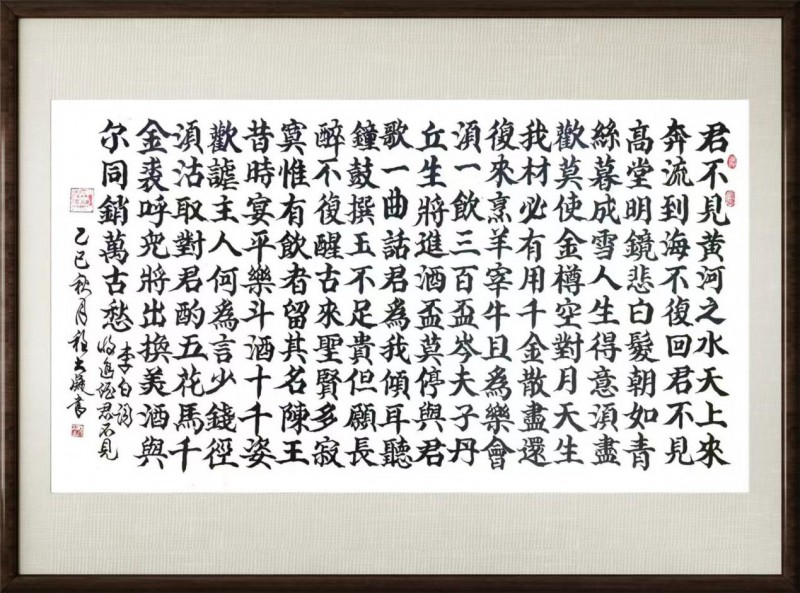 君不見黃河之水天上來
奔流到海不復回君不見
高堂明鏡悲白髮朝如青
絲暮成雪人生得意湏盡
歡莫使金樽空對月天生
我材必有用千金散盡還
復來烹羊宰牛且為樂會
湏一飲三百盃岑夫子丹
丘生將進酒盃莫停與君
歌一曲話君為我傾耳聽
鐘鼓撰玉不足貴但願長
醉不復醒古來聖賢多寂
寞惟有飲者留其名陳王
昔時宴平樂斗酒十千姿
歡謔主人何為言少錢徑
湏沽取對君酌五花馬千
金裘呼兒將出換美酒與
尔同銷萬古愁
李白詞
將進酒君不見
乙巳秋月程書